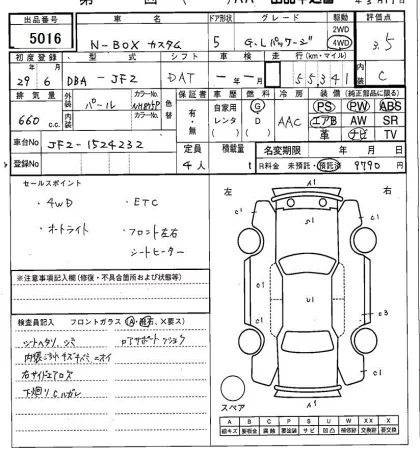 出品番号 車名 ドア形状 グレード 駆動 評価点
5016 N-BOX カスタム 5 G.Lパッケージ 2WD 4WD 3.5
初度登録 型式 シフト 車検 走行(km・マイル) 内装
29年 6月 DBA-JF2 DAT -年-月 55,341 C
排気量 外装 カラーNo. 色替 保証書 車歴 燃料 冷房 装備(純正部品に限る)
660 c.c. パール NH875P 有・無 自家用 レンタ ( ) G D ( ) AAC PS PW ABS
内装 カラーNo. エアB AW SR
革 ナビ TV
車台No JF2-1524232 定員 積載量 名変期限 年 月 日
登録No 4人 t R料金 未預託・預託済 9790 円
セールスポイント
・4WD ・ETC
・オートライト ・フロント左右
シートヒーター
※注意事項記入欄(修復・不具合箇所および状態等)
検査員記入 フロントガラス(A・飛石、X要ス)
シートヘタリ、シミ
右サイドエアロ欠
左 右
A1
C1 C1
S1
C1 C1
U1
C3
C1 C1
A1
スペア
A B C P S U W X XX
線キズ 要板金 腐蝕 要塗装 サビ 凹凸 補修跡 交換跡 要交換